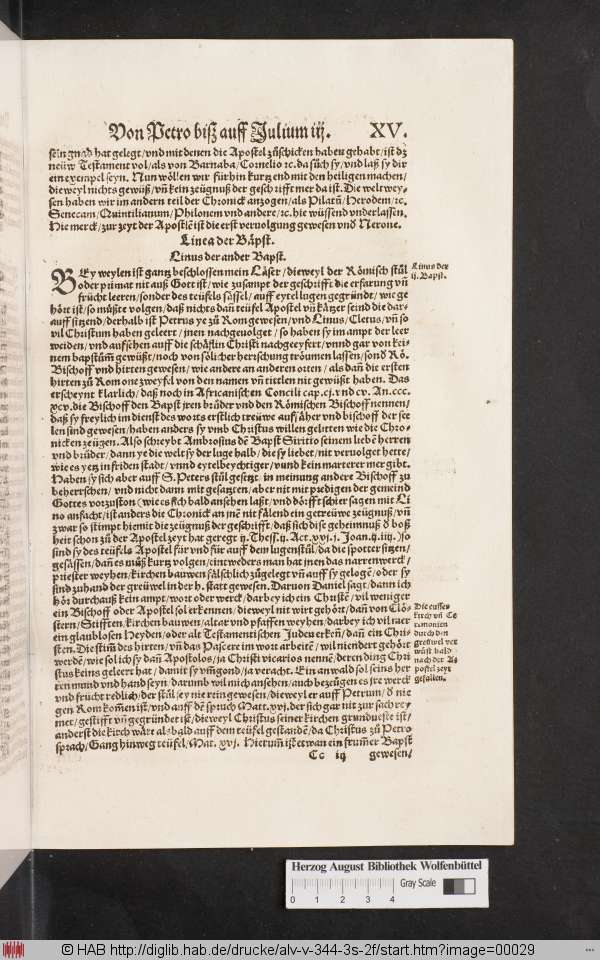 Von Petro biß auff Julium iij. XV.
sein gnad hat gelegt/vnd mit denen die Apostel zůschicken haben gehabt/ist dz
neüw Testament vol/als von Barnaba/Cornelio ꝛc. da sůch sy/vnd laß sy dir
ein exempel seyn. Nun wöllen wir fürhin kurtz end mit den heiligen machen/
dieweyl nichts gewüß/vñ kein zeügnuß der geschrifft mer da ist. Die weltwey-
sen haben wir im andern teil der Chronick anzogen/als Pilatũ/Herodem/ꝛc.
Senecam/Quintilianum/Philonem vnd andere/ꝛc. hie wüssend vnderlassen.
Hie merck/zur zeyt der Apostlē ist die erst veruolgung gewesen vnd̄ Nerone.
Linea der Bäpst.
Linus der ander Bapst.
BEy weylen ist gantz beschlossen mein Läser/dieweyl der Römisch stůl
oder primat nit auß Gott ist/wie zusampt der geschrifft die erfarung vñ
frücht leeren/sonder des teüfels sässel/auff eytel lugen gegründt/wie ge
hört ist/so můßte volgen/daß nichts dañ teüfel Apostel vñ kätzer seind die dar-
auff sitzend/derhalb ist Petrus ye zů Rom gewesen/vnd Linus/Cletus/vñ so
vil Christum haben geleert/jnen nachgeuolget/so haben sy im ampt der leer
weiden/vnd aufsehen auff die schäflin Christi nachgeeyfert/vnnd gar von kei-
nem bapstům̃ gewüßt/noch von sölicher herrschung tröumen lassen/sond̄ Rö.
Bischoff vnd hirten gewesen/wie andere an anderen orten/als dañ die ersten
hirten zů Rom one zweyfel von den namen vñ tittlen nit gewüßt haben. Das
erscheynt klarlich/daß noch in Africanischen Concili cap. cj. vnd cv. An. cccc.
xcv. die Bischoff den Bapst jren brůder vnd den Römischen Bischoff nennen/
daß sy freylich im dienst des worts erstlich treüwe aufsäher vnd bischoff der see
len sind gewesen/haben anders sy vmb Christus willen gelitten wie die Chro-
nicken zeügen. Also schreybt Ambrosius dē Bapst Siritio seinem lieben herren
vnd brůder/dann ye die welt sy der luge halb/die sy liebet/nit veruolget hette/
wie es yetz in friden stadt/vnnd eytel beychtiger/vnnd kein marterer mer gibt.
Haben sy sich aber auff S. Peters stůl gesetzt in meinung andere Bischoff zů
beherrschen/vnd nicht dann mit gesatzten/aber nit mit predigen der gemeind
Gottes vorzuston (wie es sich bald ansehen laßt/vnd dörfft schier sagen mit Li
no ansacht/ist anders die Chronick an jm̃e nit fälend ein getreüwe zeügnuß/vñ
zwar so stimpt hiemit die zeügnuß der geschrifft/daß sich dise geheimnuß d̄ boß
heit schon zů der Apostel zeyt hat geregt ij. Thess. ij. Act. xvj. j. Joan. ij. iiij.) so
sind sy des teüfels Apostel für vnd für auff dem lugenstůl/da die spotter sitzen/
gesässen/dañ es můß kurtz volgen/eintweders man hat jnen das narrenwerck/
priester weyhen/kirchen bauwen fälschlich zůgelegt vñ auff sy gelogē/oder sy
sind zuhand der greüwel in der h. statt gewesen. Daruon Daniel sagt/dann ich
hör durchauß kein ampt/wort oder werck/darbey ich ein Christē/vil weniger
ein Bischoff oder Apostel sol erkennen/dieweyl nit wirt gehört/dañ von Clö-
stern/Stifften/kirchen bauwen/altar vnd pfaffen weyhen/darbey ich vil mer
ein glaublosen Heyden/oder alt Testamentischen Juden erkeñ/dañ ein Chri-
sten. Die stim̃ des hirten/vñ das Pascere im wort arbeitē/wil niendert gehört
werdē/wie sol ich sy dañ Apostolos/ja Christi vicarios nennē/deren ding Chri
stus keins geleert hat/damit sy vmgond/ja veracht. Ein anwald sol seins her
ren mund vnd hand seyn/darumb wil mich ansehen/auch bezügen es jre werck
vnd frücht redlich/der stůl sey nie rein gewesen/dieweyl er auff Petrum/d̄ nie
gen Rom kom̃en ist/vnd auff dē spruch Matt. xvj. der sich gar nit zur sach rey-
met/gestifft vñ gegründet ist/dieweyl Christus seiner kirchen grundueste ist/
anderst die kirch wäre als bald auff dem teüfel gestandē/da Christus zů Petro
sprach/Gang hinweg teüfel/Mat. xvj. Hierum̃ ist etwan ein frum̃er Bapst
Cc iij gewesen/
Linus der
ij. Bapst.
Die eusser
kirch vñ Ce
remonien
durch den
greüwel ver
wüst bald
nach der A-
postel zeyt
gefallen.
Herzog August Bibliothek Wolfenbüttel
0 1 2 3 4 Gray Scale
© HAB http://diglib.hab.de/drucke/alv-v-344-3s-2f/start.htm?image=00029